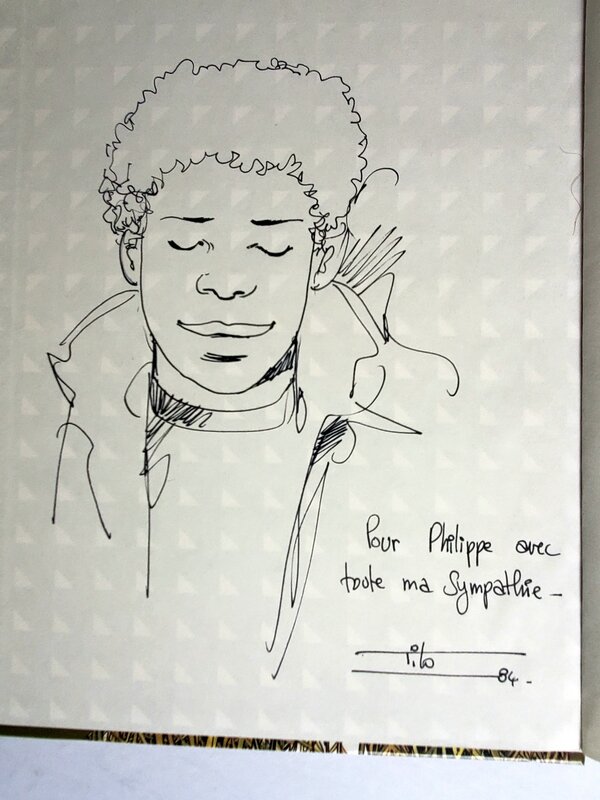 Pour Philippe avec
toute ma Sympathie -
Tito
84.